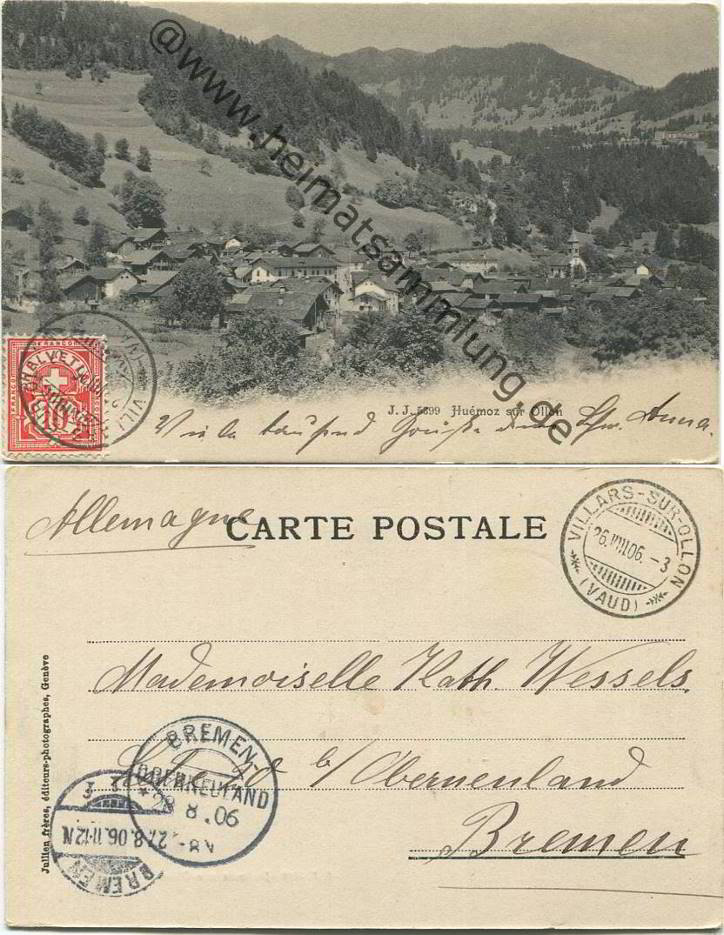 @www.heimatsammlung.de
HELVETIA
FRANCO FRANCO
10
J. J. 5899 Huémoz sur Ollon
Viele tausend Grüße Anna.
Allemagne
CARTE POSTALE
VILLARS-SUR-OLLON
26.VIII.06.-3
(VAUD)
Mademoiselle Kath. Wessels
b/Oberneuland
Bremen
BREMEN-
OBERNEULAND
28.8.06
BREMEN
27.8.06.11-12N.
Jullien frères, éditeurs-photographes, Genève